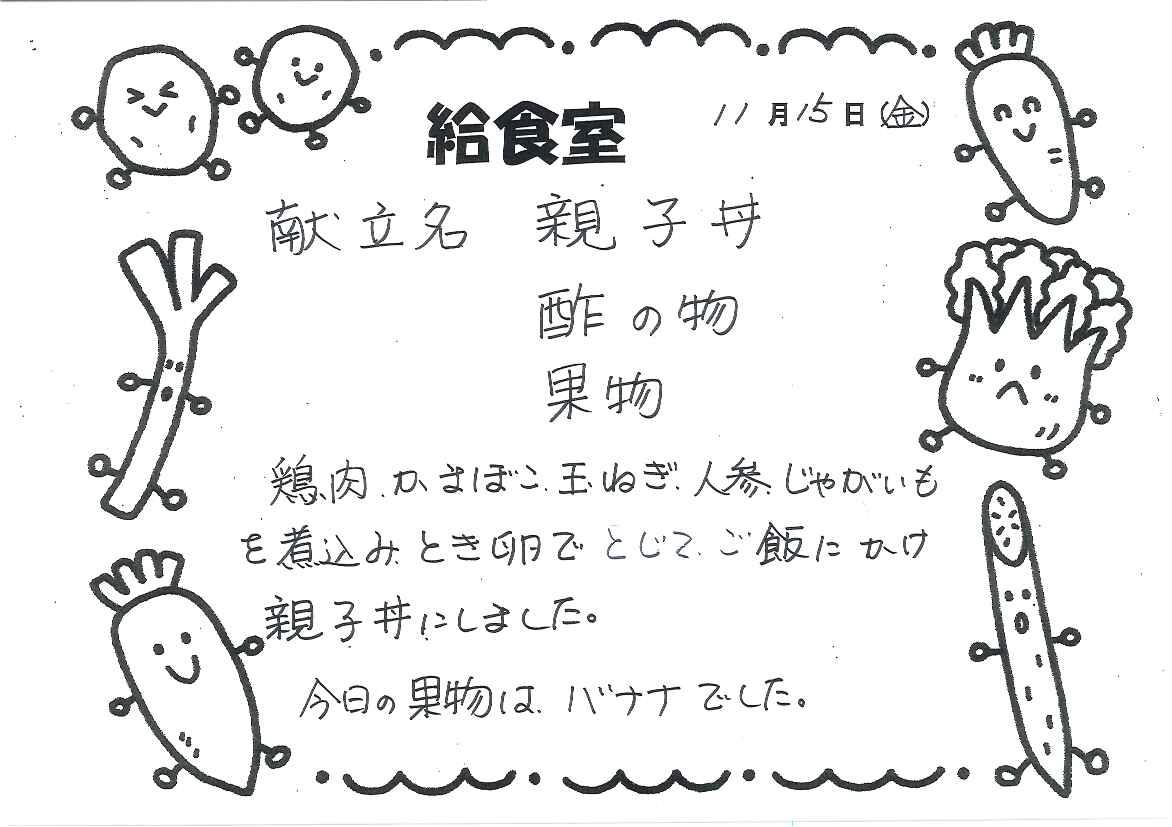 給食室 11月15日(金)
献立名 親子丼
酢の物
果物
鶏肉、かまぼこ、玉ねぎ、人参、じゃがいも
を煮込み、とき卵でとじて、ご飯にかけ
親子丼にしました。
今日の果物は、バナナでした。